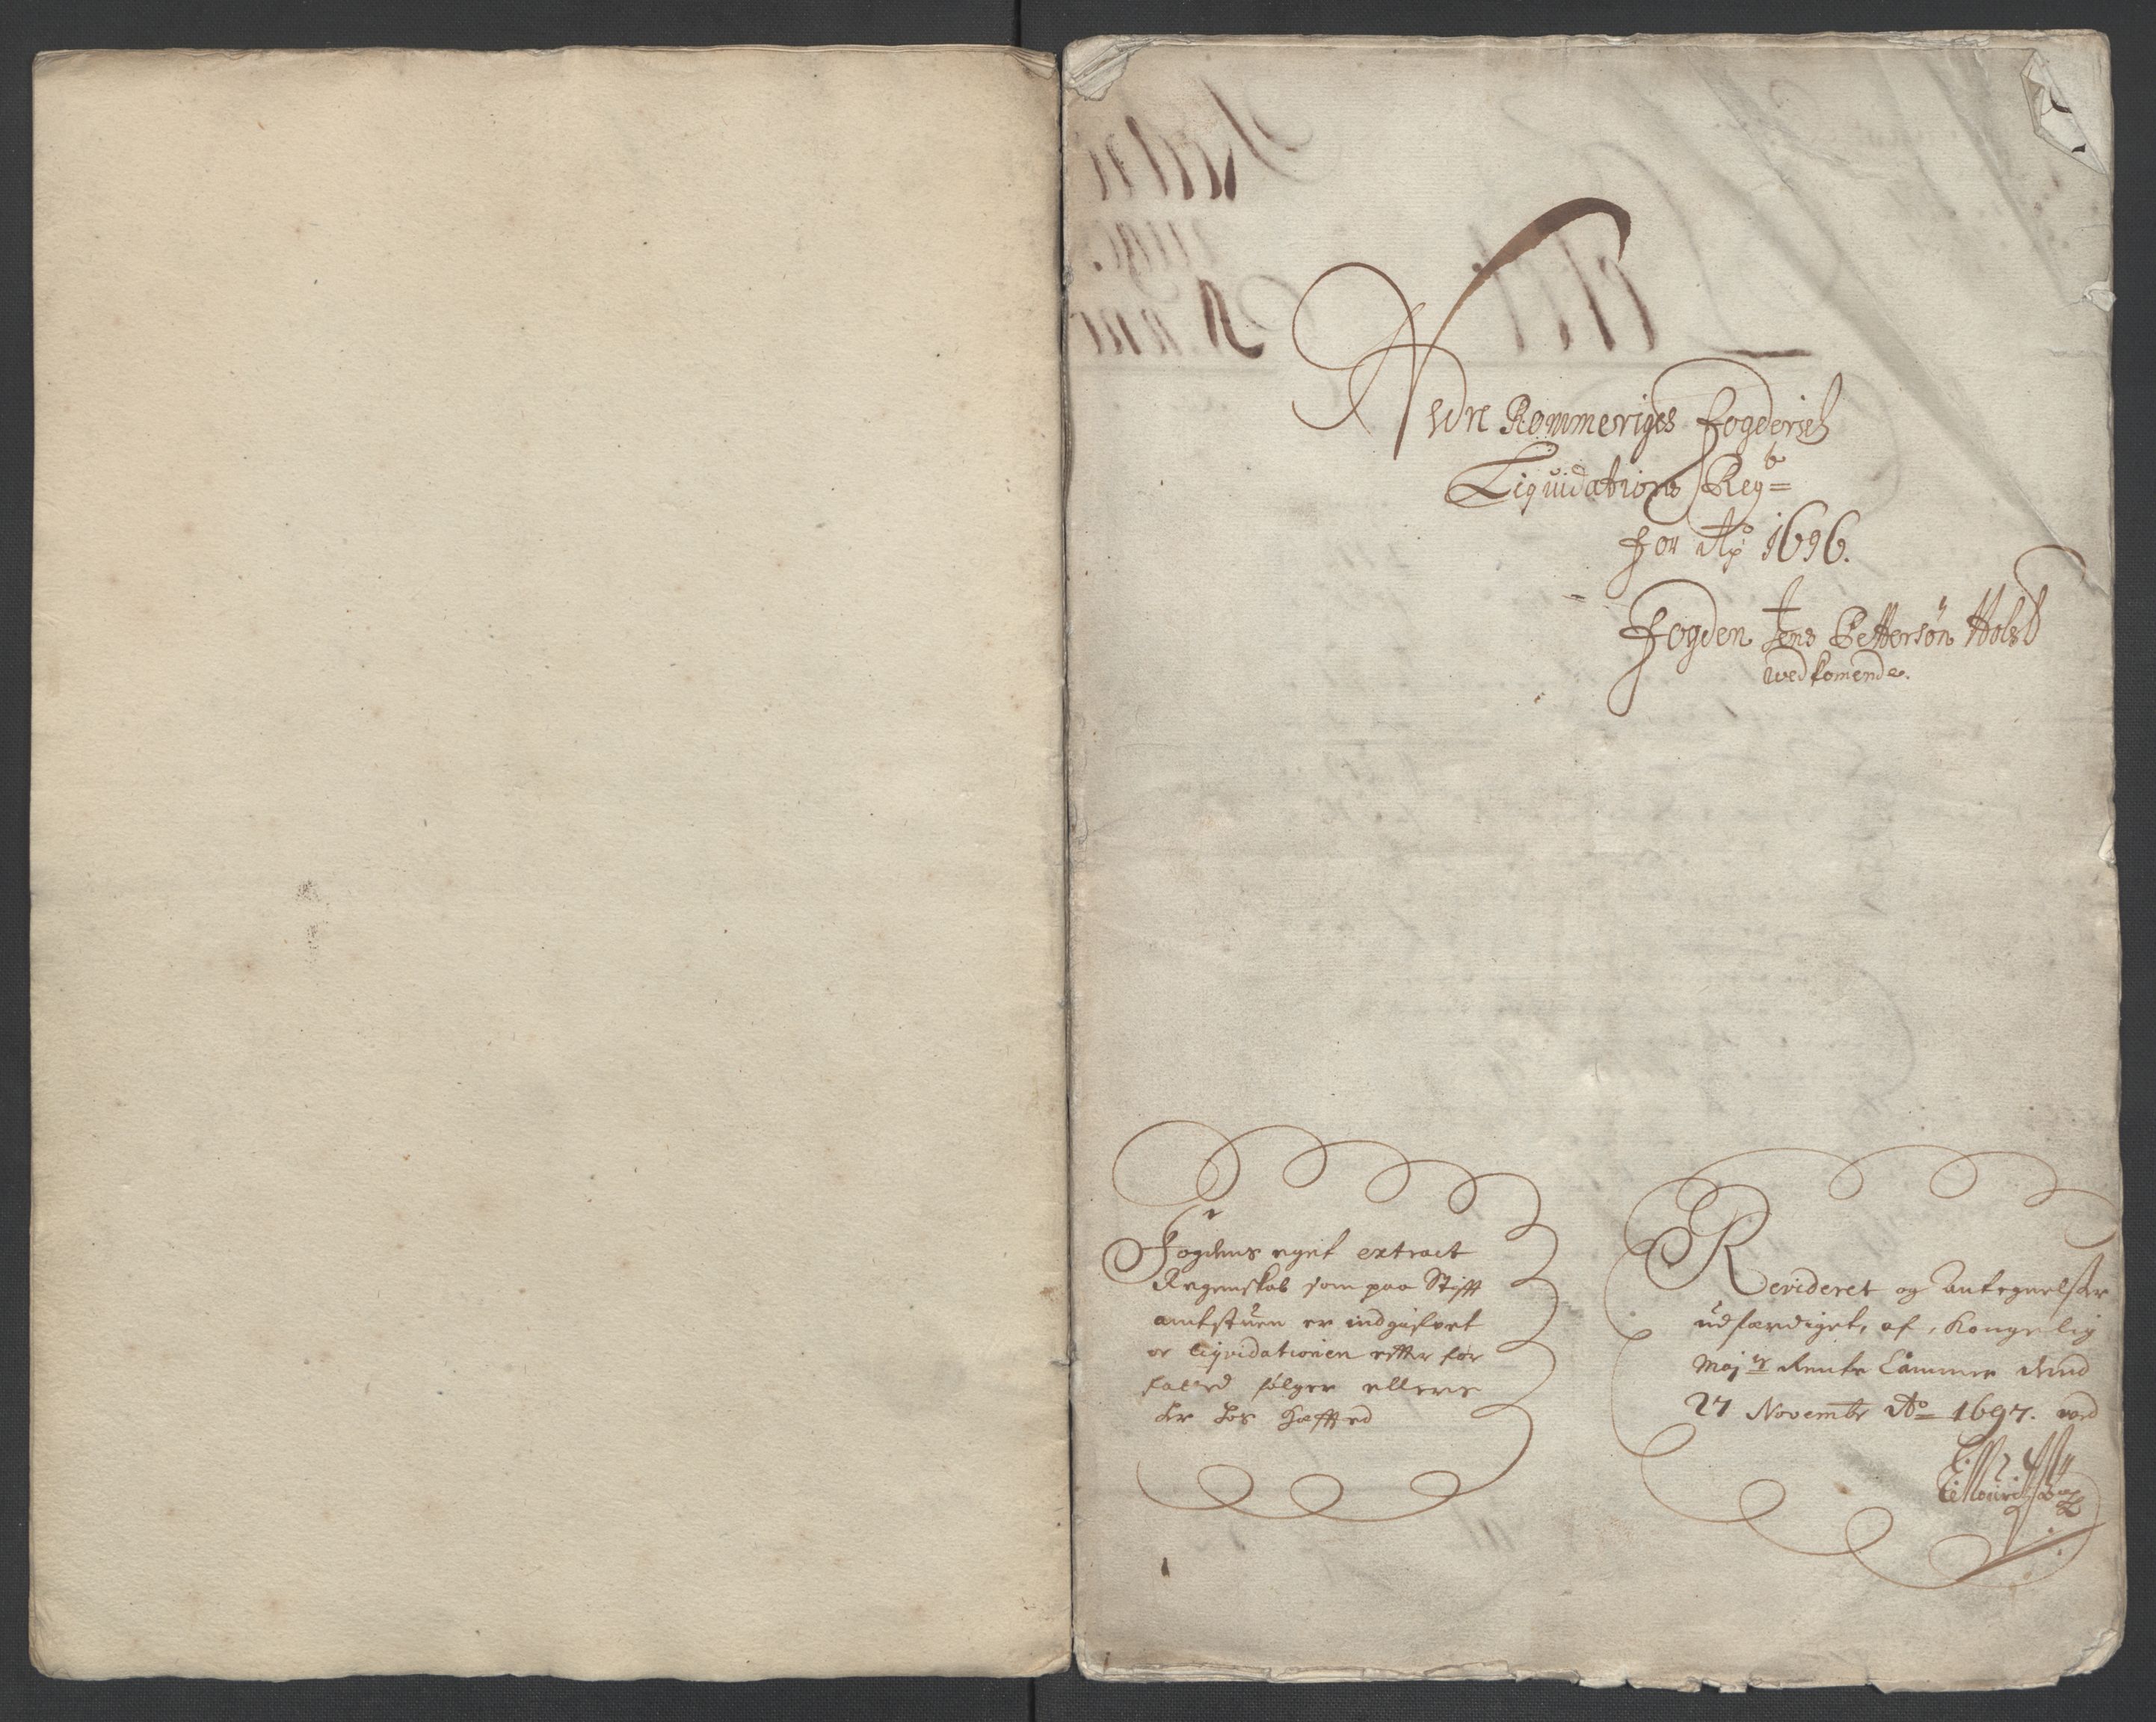 Nedre Rommeriges fogderies
Liqvidations Regb
for Ao 1696.
Fogden Jens Pettersøn Holst
wedkomende.
Fogdens eget extract
Regenskab som paa Stifft
amtstuen er indgifvet
or liqvidationen efter for
fatted følger ellers
her hos hæffted
Revideret og Antegnelser
udfærdiget, af, Kongelig
Majts Rente Cammer dend
27 Novembr Ao 1697. ved